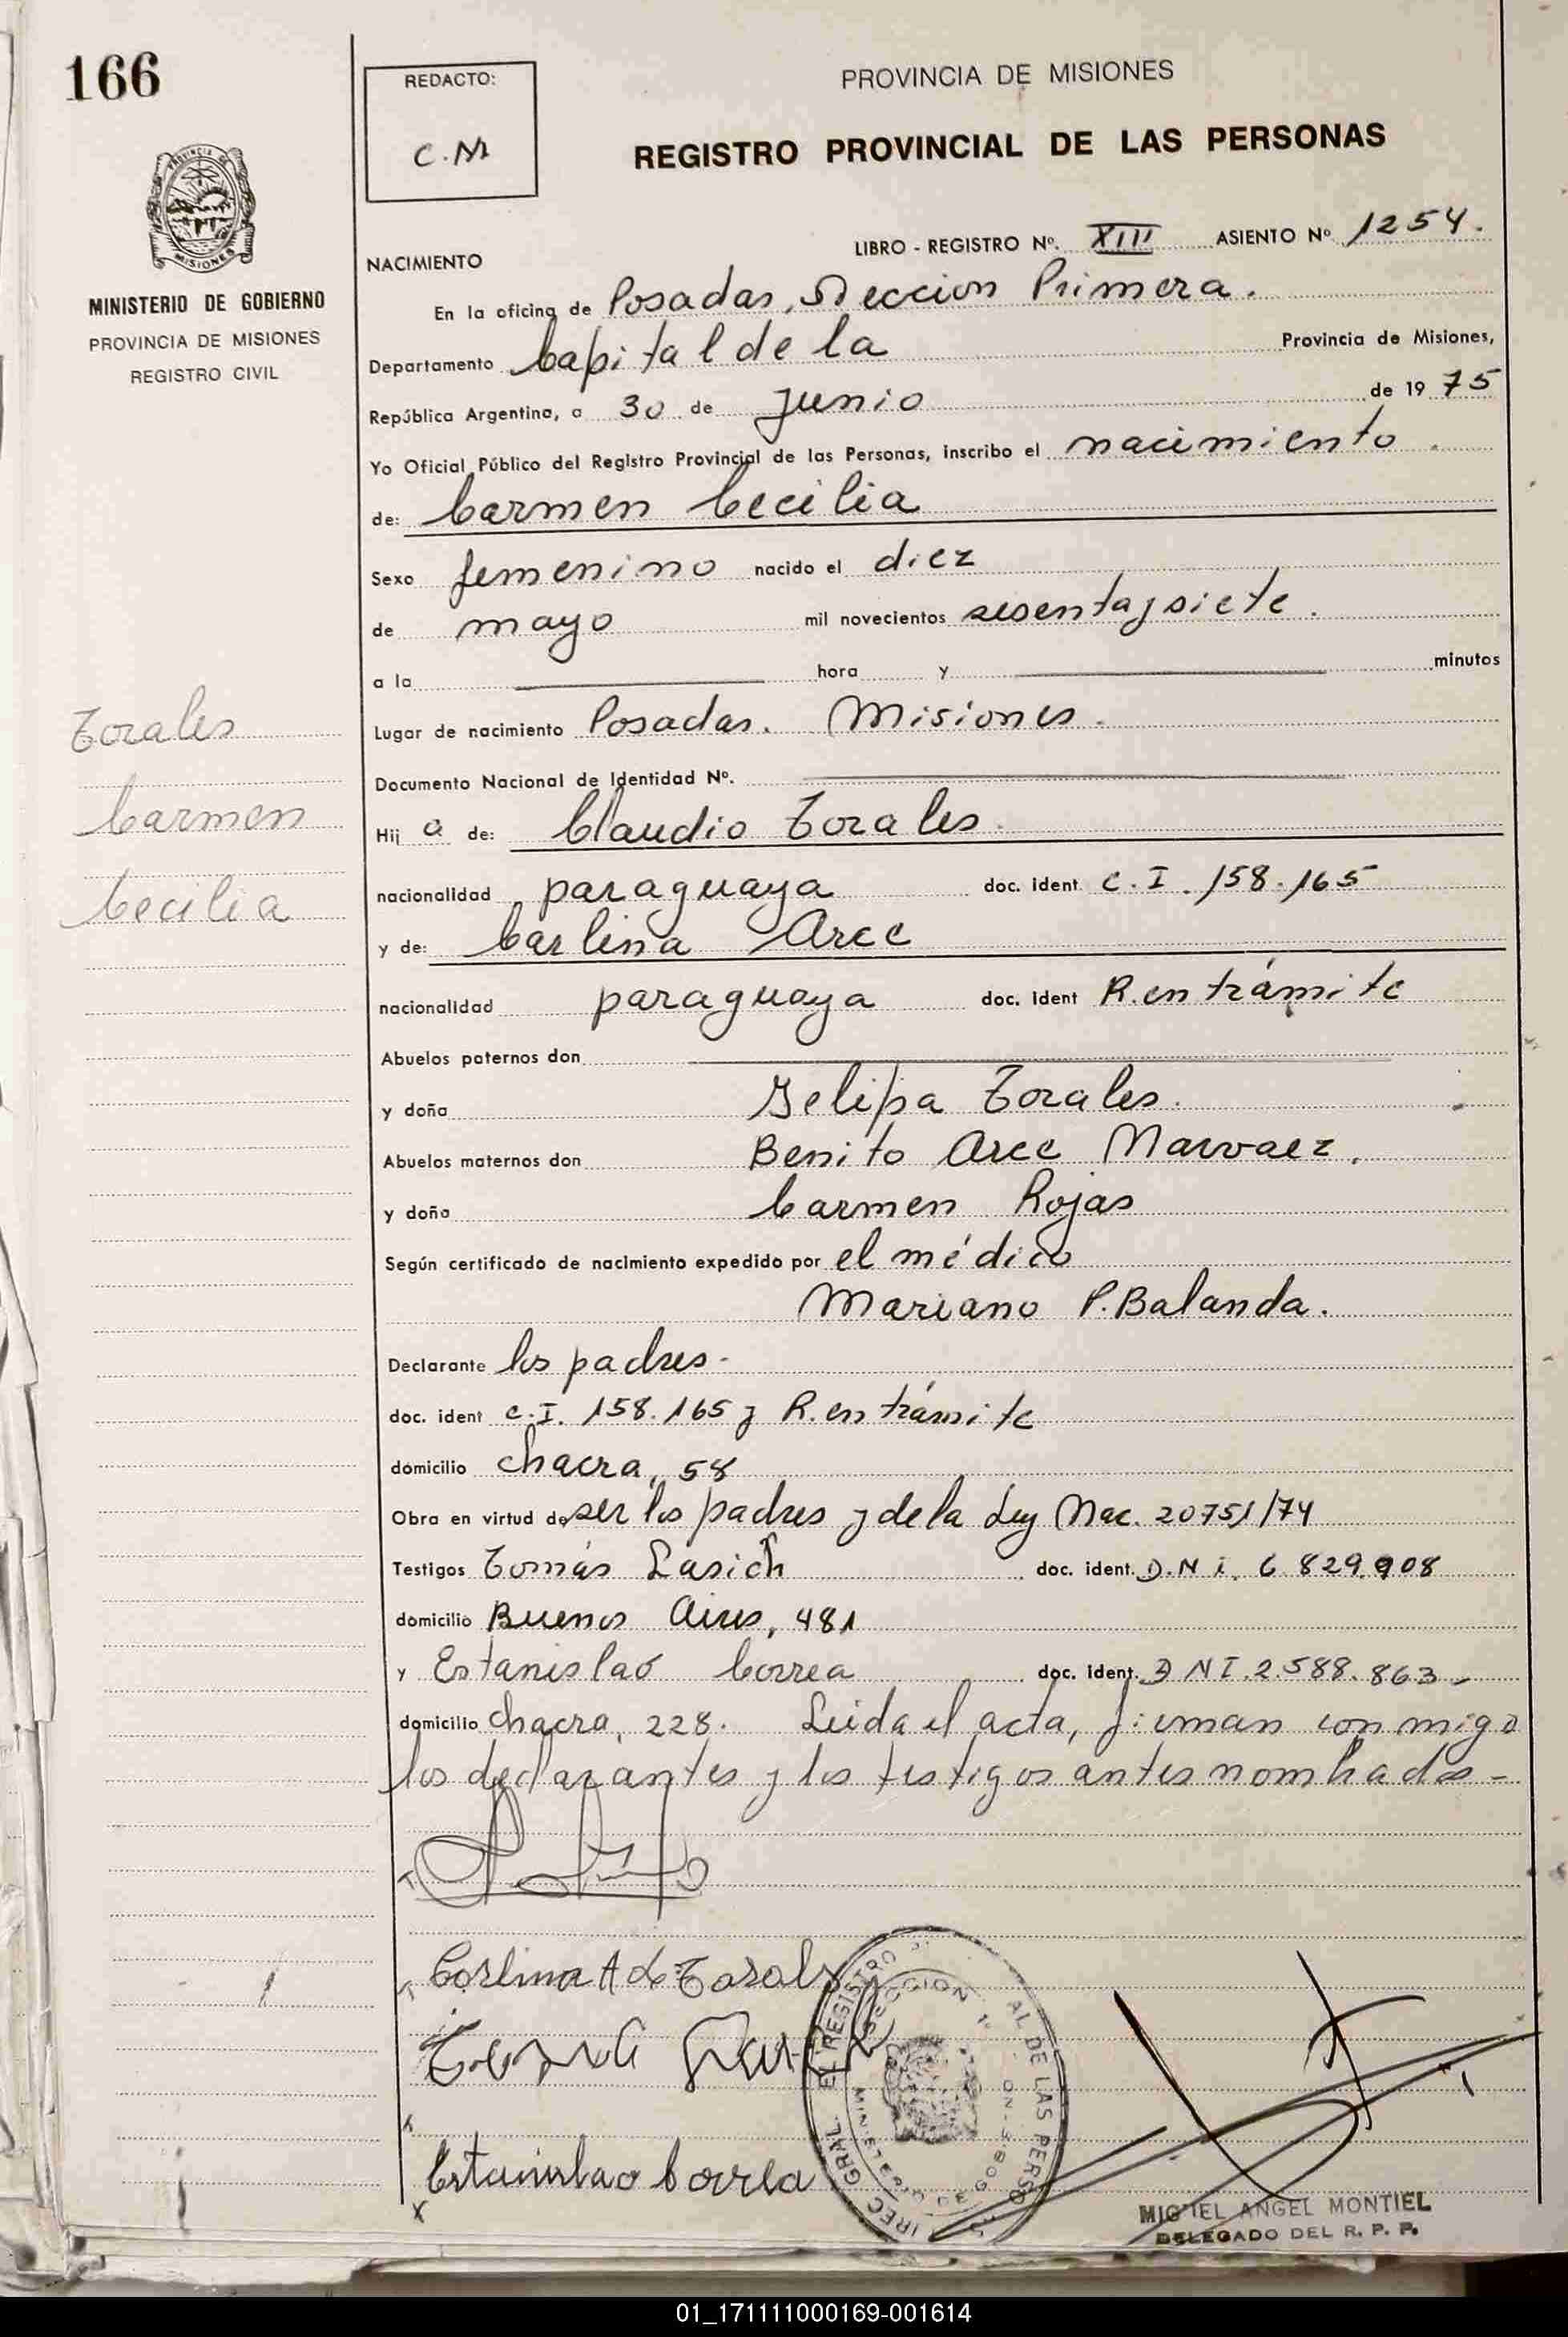 166
REDACTO:
C.M
PROVINCIA DE MISIONES
REGISTRO PROVINCIAL DE LAS PERSONAS
PROVINCIA DE
MISIONES
MINISTERIO DE GOBIERNO
PROVINCIA DE MISIONES
REGISTRO CIVIL
LIBRO - REGISTRO Nº. XIII ASIENTO Nº 1254.
NACIMIENTO
En la oficina de Posadas, Seccion Primera.
Departamento Capital de la Provincia de Misiones,
República Argentina, a 30 de Junio de 19 75
Yo Oficial Público del Registro Provincial de las Personas, inscribo el nacimiento.
de: Carmen Cecilia
Sexo femenino nacido el diez
de mayo mil novecientos sesenta y siete.
a la hora y minutos
Lugar de nacimiento Posadas. Misiones.
Documento Nacional de Identidad Nº.
Torales
Carmen
Cecilia
Hij a de: Claudio Torales.
nacionalidad paraguaya doc. ident C.I. 158.165
y de: Carlina Arce
nacionalidad paraguaya doc. ident R. en trámite
Abuelos paternos don
y doña Felipa Torales.
Abuelos maternos don Benito Arce Narvaez.
y doña Carmen Rojas
Según certificado de nacimiento expedido por el médico
Mariano P. Balanda.
Declarante los padres.
doc. ident C.I. 158.165 y R. en trámite
domicilio chacra, 58
Obra en virtud de ser los padres y de la Ley Nac. 20751/74
Testigos Tomás Lasich doc. ident. D.N.I. 6 829.908
domicilio Buenos Aires, 481
y Estanislao Correa doc. ident. DNI. 2.588.863.
domicilio chacra, 228. Leida el acta, firman conmigo
los declarantes y los testigos antes nombrados-
Carlina A de Torales
Estanislao Correa
MIGUEL ANGEL MONTIEL
DELEGADO DEL R. P. P.
01_171111000169-001614